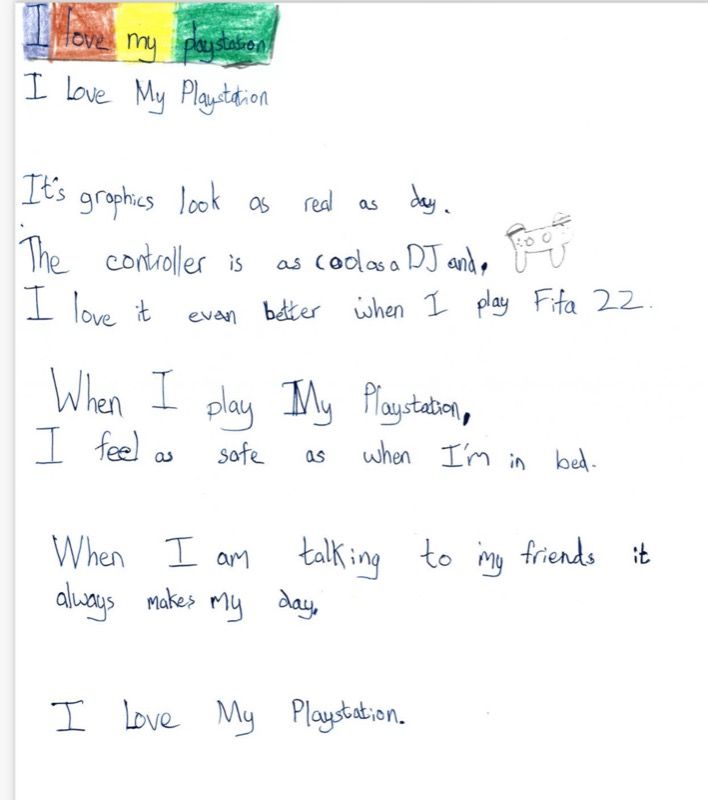 I love my playstation
I Love My Playstation
It's graphics look as real as day.
The controller is as cool as a DJ and,
I love it even better when I play Fifa 22.
When I play My Playstation,
I feel as safe as when I'm in bed.
When I am talking to my friends it
always makes my day.
I Love My Playstation.